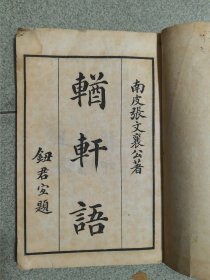 南皮張文襄公著
輶軒語
鈕君宜題